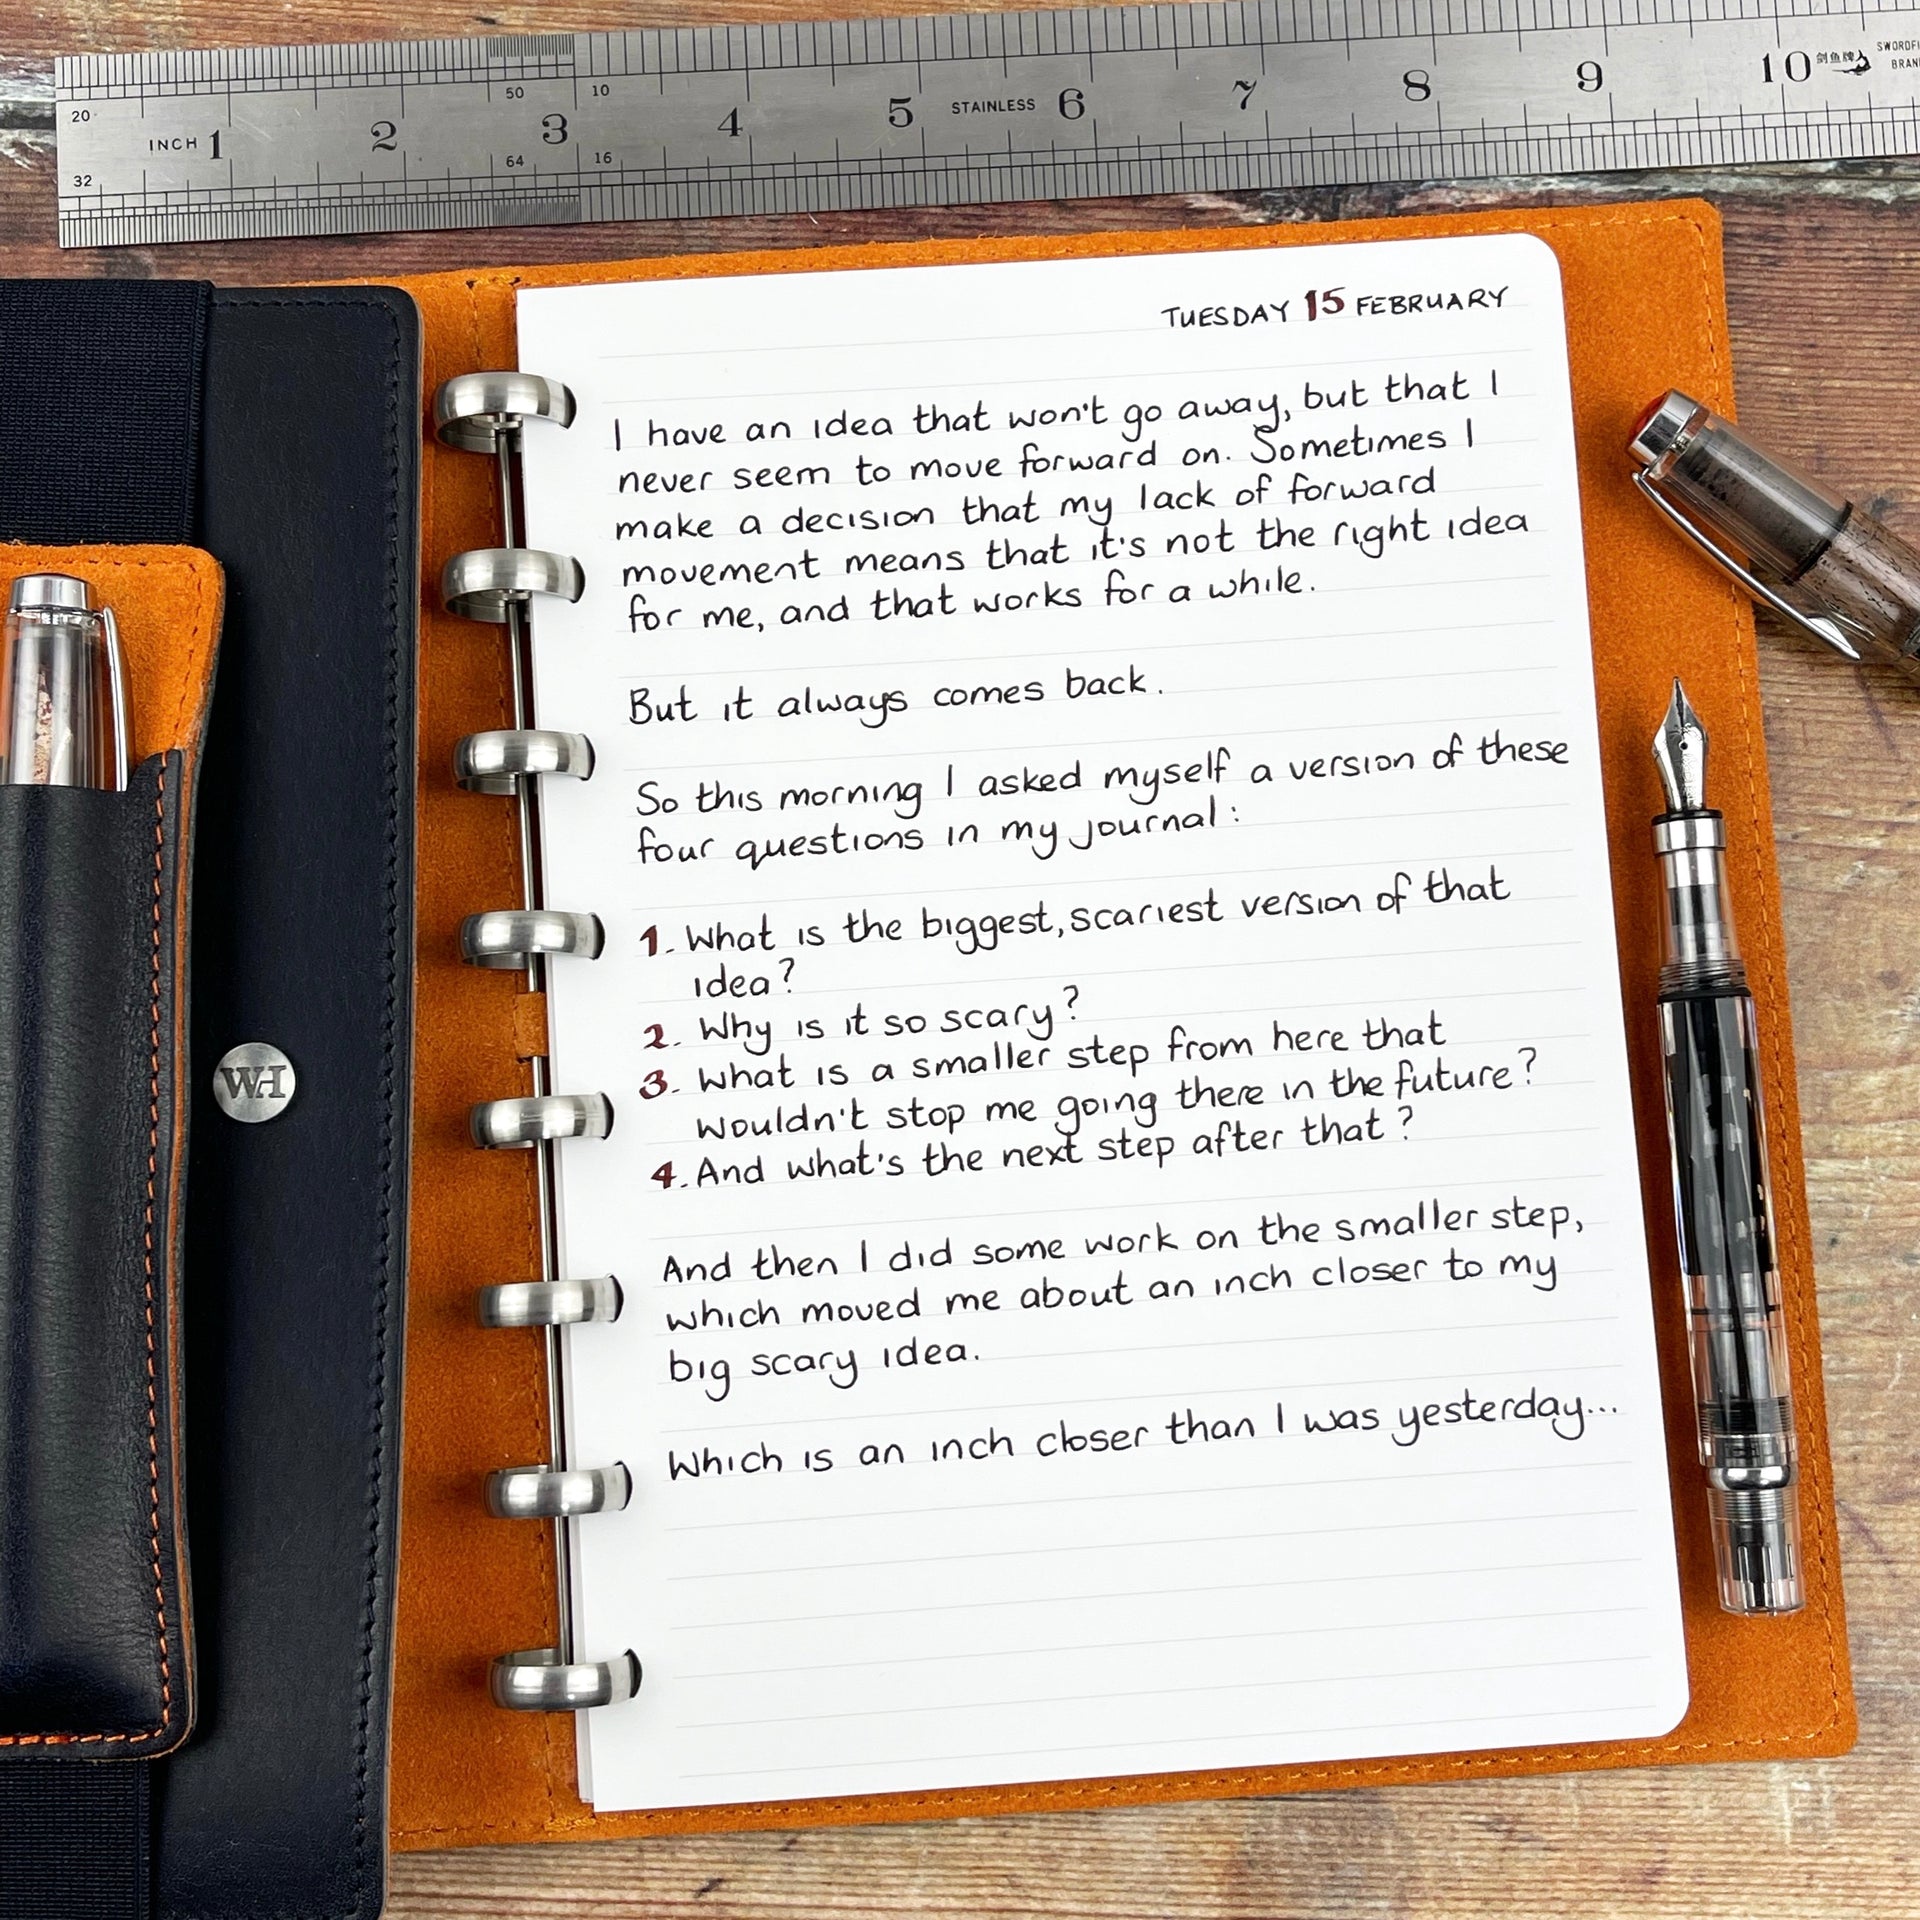 20 50 10
INCH 1 2 3 4 5 STAINLESS 6 7 8 9 10 剑鱼牌
32 64 16
TUESDAY 15 FEBRUARY
I have an idea that won't go away, but that I
never seem to move forward on. Sometimes I
make a decision that my lack of forward
movement means that it's not the right idea
for me, and that works for a while.
But it always comes back.
So this morning I asked myself a version of these
four questions in my journal:
1. What is the biggest, scariest version of that
idea?
2. Why is it so scary?
3. What is a smaller step from here that
wouldn't stop me going there in the future?
4. And what's the next step after that?
And then I did some work on the smaller step,
which moved me about an inch closer to my
big scary idea.
Which is an inch closer than I was yesterday...
WH